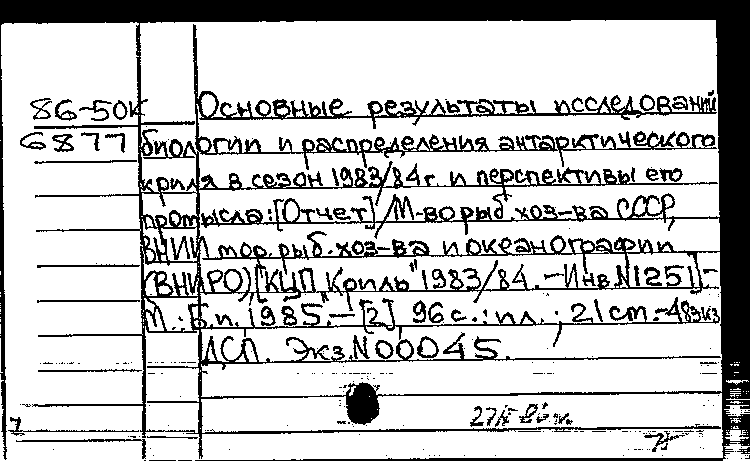 86-50К Основные результаты исследований
6877 биологии и распределения антарктического
криля в сезон 1983/84г. и перспективы его
промысла: [Отчет] / М-во рыб. хоз-ва СССР,
ВНИИ мор. рыб. хоз-ва и океанографии
(ВНИРО), [КЦП "Криль" 1983/84. - Инв. N1251] -
М.: Б.и., 1985. - [2], 96 с.: ил.; 21 см. - 48экз
ДСП. Экз. N00045.
27/V 86 г.
7